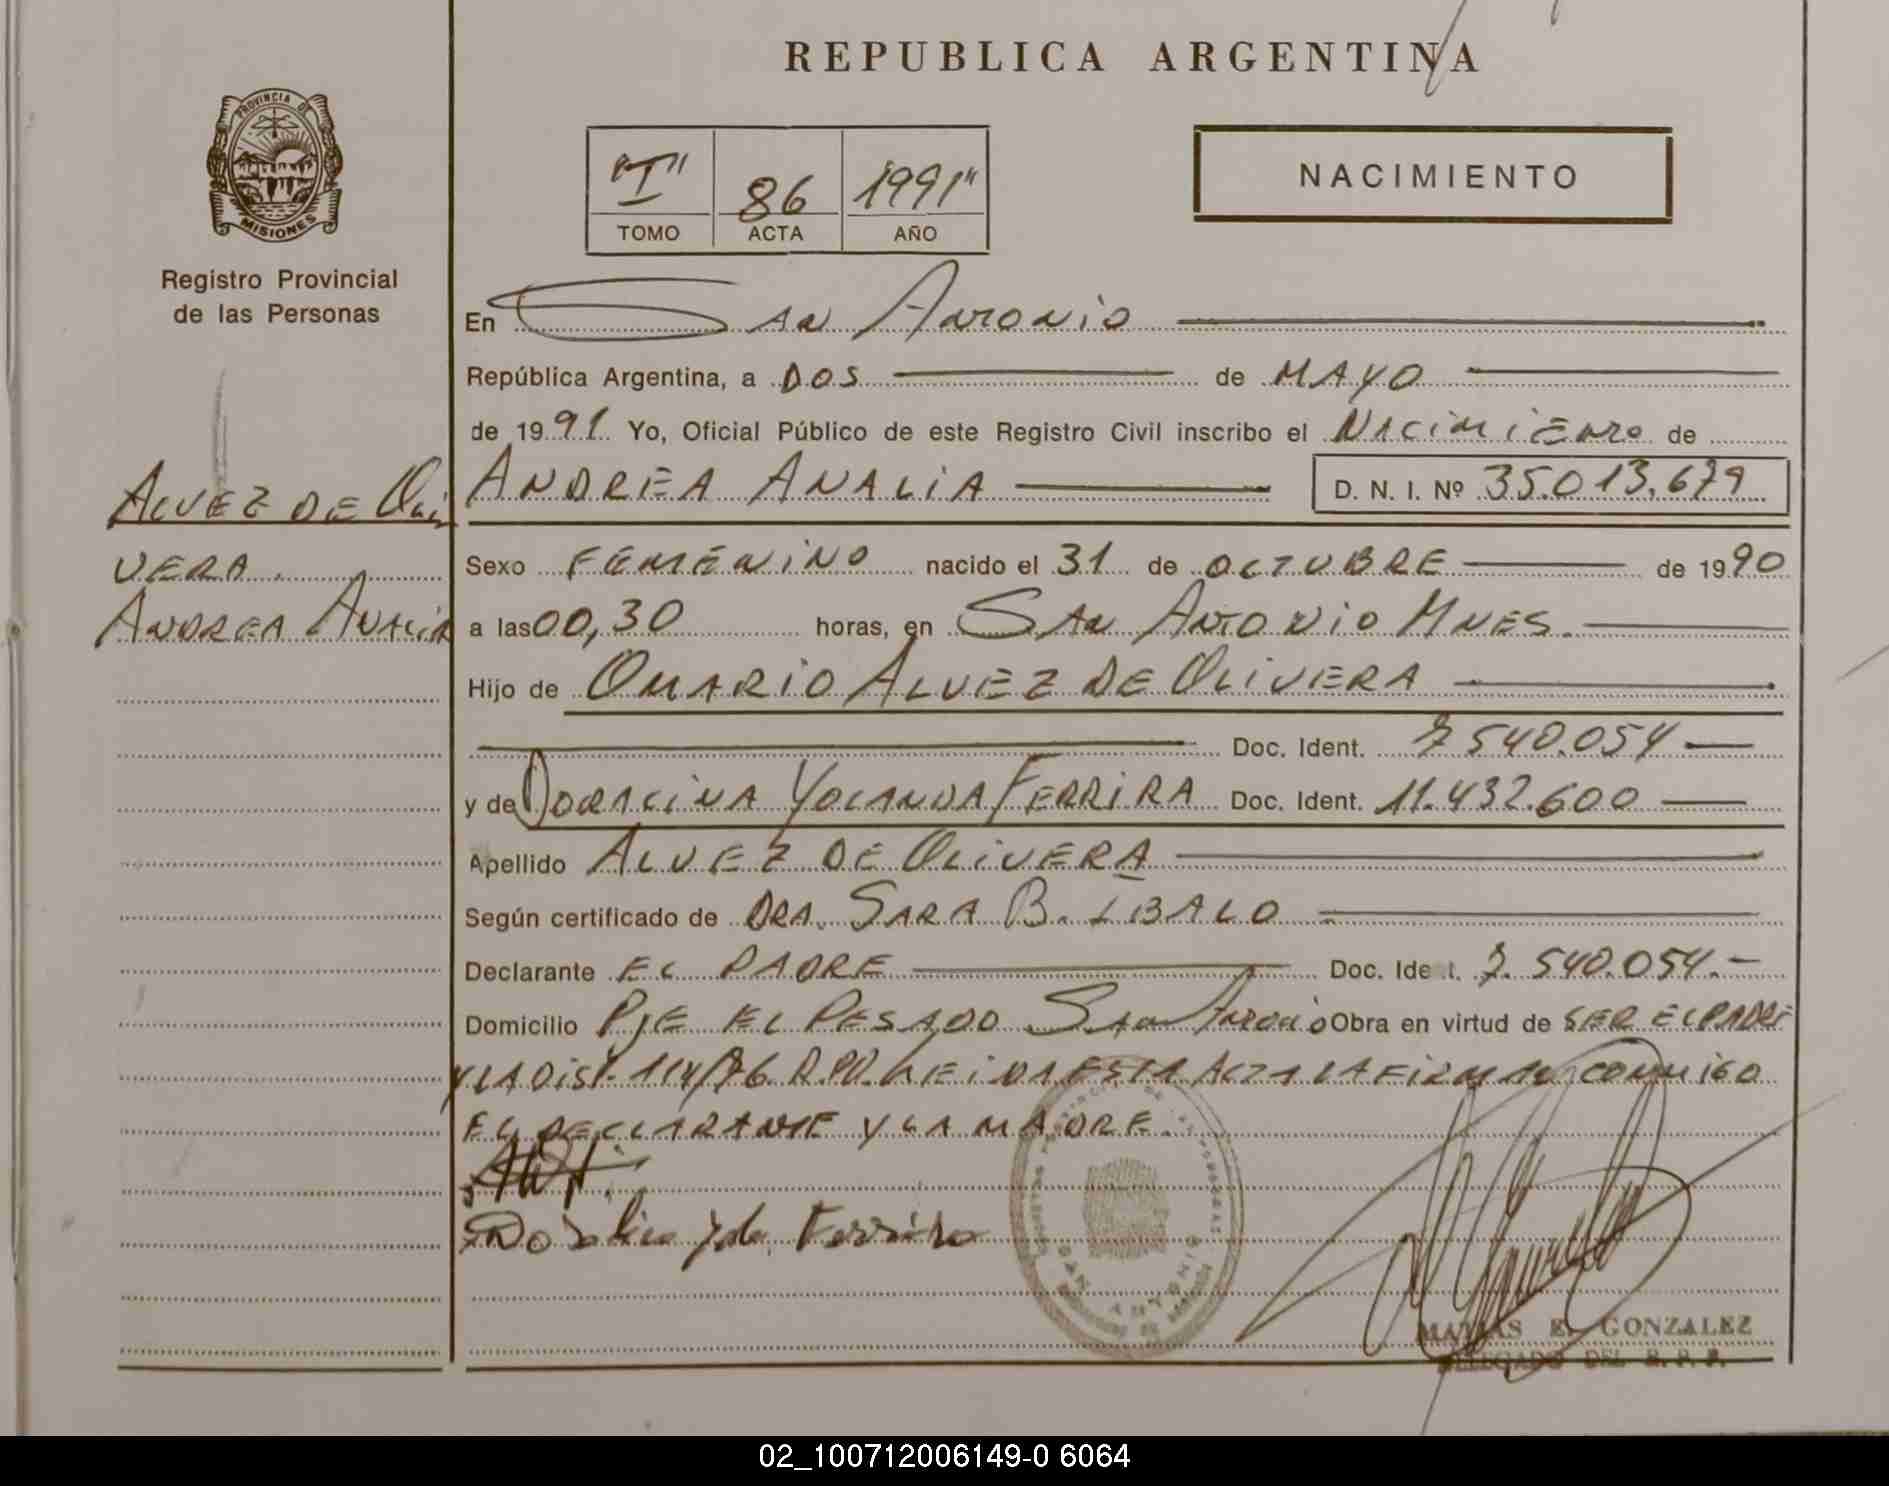 REPUBLICA ARGENTINA
PROVINCIA DE
MISIONES
Registro Provincial
de las Personas
"I" 86 1991"
TOMO ACTA AÑO
NACIMIENTO
En San Antonio
República Argentina, a DOS de MAYO
de 1991 Yo, Oficial Público de este Registro Civil inscribo el Nacimiento de
ANDREA ANALIA D. N. I. Nº 35.013.679
ALVEZ DE Oli
VERA.
ANDREA ANALIA
Sexo FEMENINO nacido el 31 de OCTUBRE de 1990
a las 00,30 horas, en SAN ANTONIO MNES.
Hijo de OMARIO ALVEZ DE OLIVERA
Doc. Ident. 7 540.054
y de DORALINA YOLANDA FERRIRA Doc. Ident. 11.432.600
Apellido ALVEZ DE OLIVERA
Según certificado de DRA. SARA B.
Declarante EL PADRE Doc. Ident. 7. 540.054.-
Domicilio PJE EL PESADO San Antonio Obra en virtud de SER EL PADRE
Y LA DISP. 114/76 R.P.P. LEIDA ESTA ACTA LA FIRMAN CONMIGO
EL DECLARANTE Y LA MADRE.
SAN ANTONIO
MATIAS E. GONZALEZ
DELEGADO DEL R. P. P.
02_100712006149-0 6064